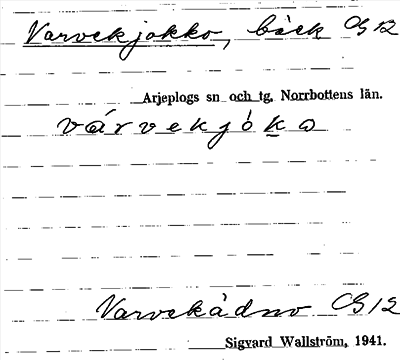 Varvekjokko, bäck CG 12
Arjeplogs sn och tg, Norrbottens län.
várvekjȯḵa
Varvekådno CG 12
Sigvard Wallström, 1941.